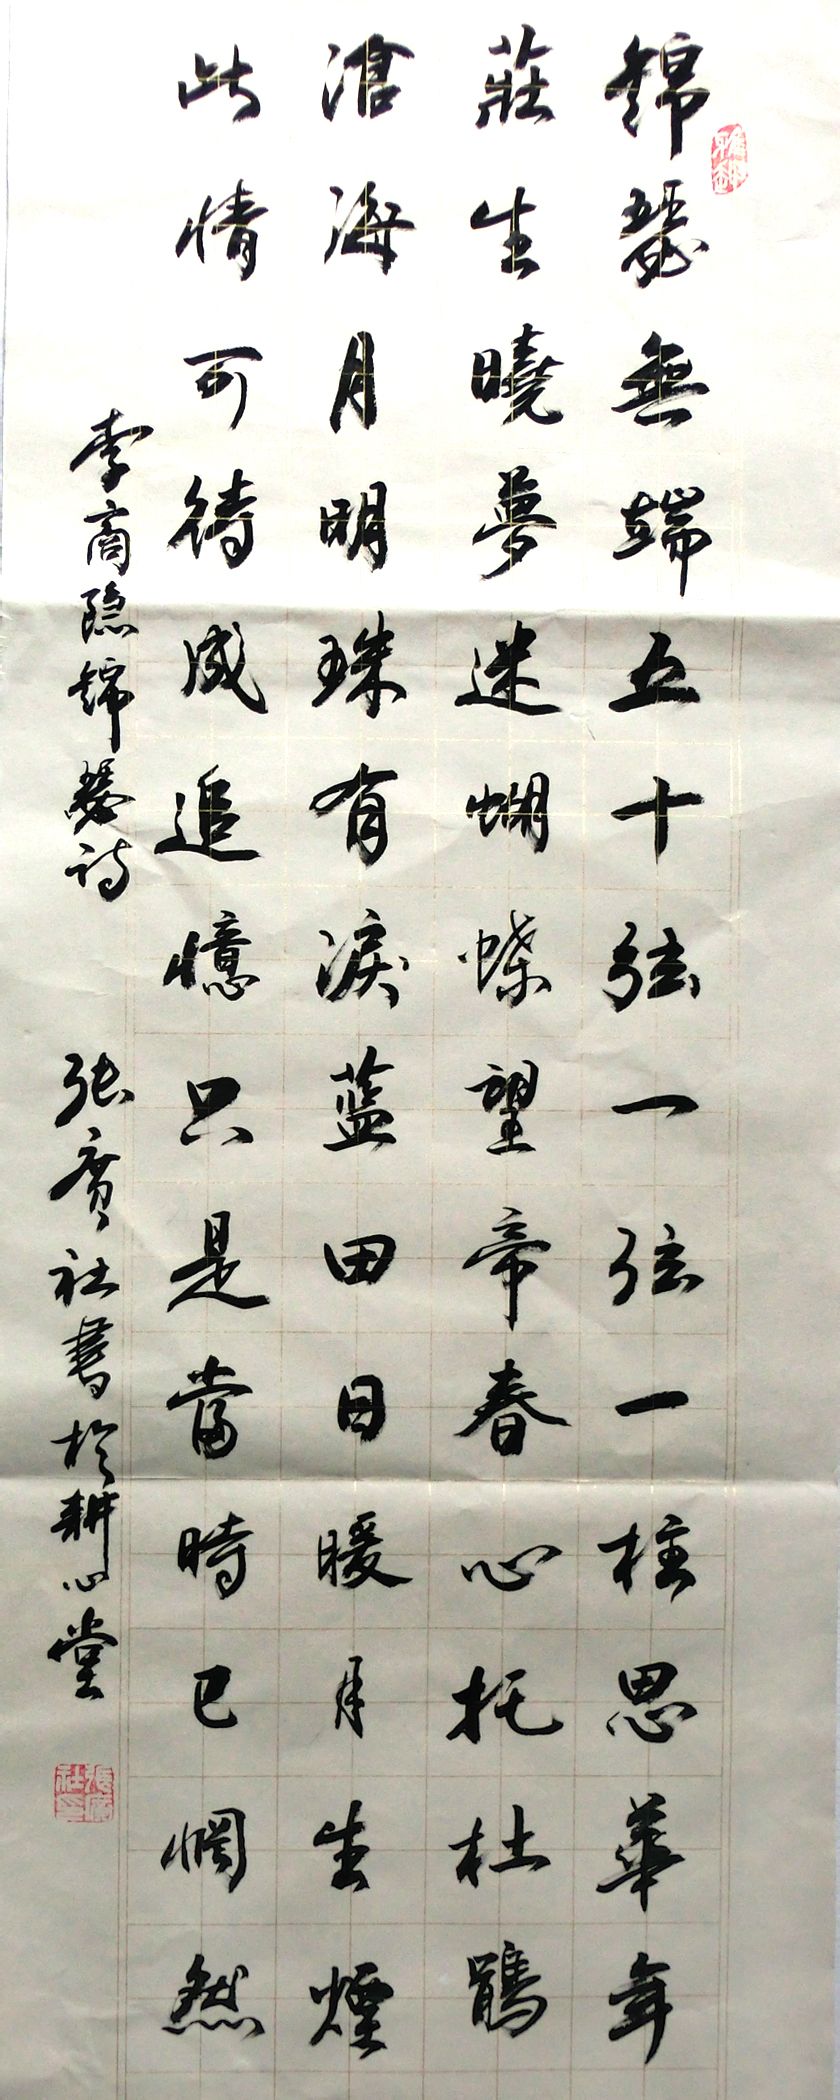 錦瑟無端五十弦一弦一柱思華年
莊生曉夢迷蝴蝶望帝春心托杜鵑
滄海月明珠有淚藍田日暖月生煙
此情可待成追憶只是當時已惘然
李商隐錦瑟诗 张廣社書於耕心堂